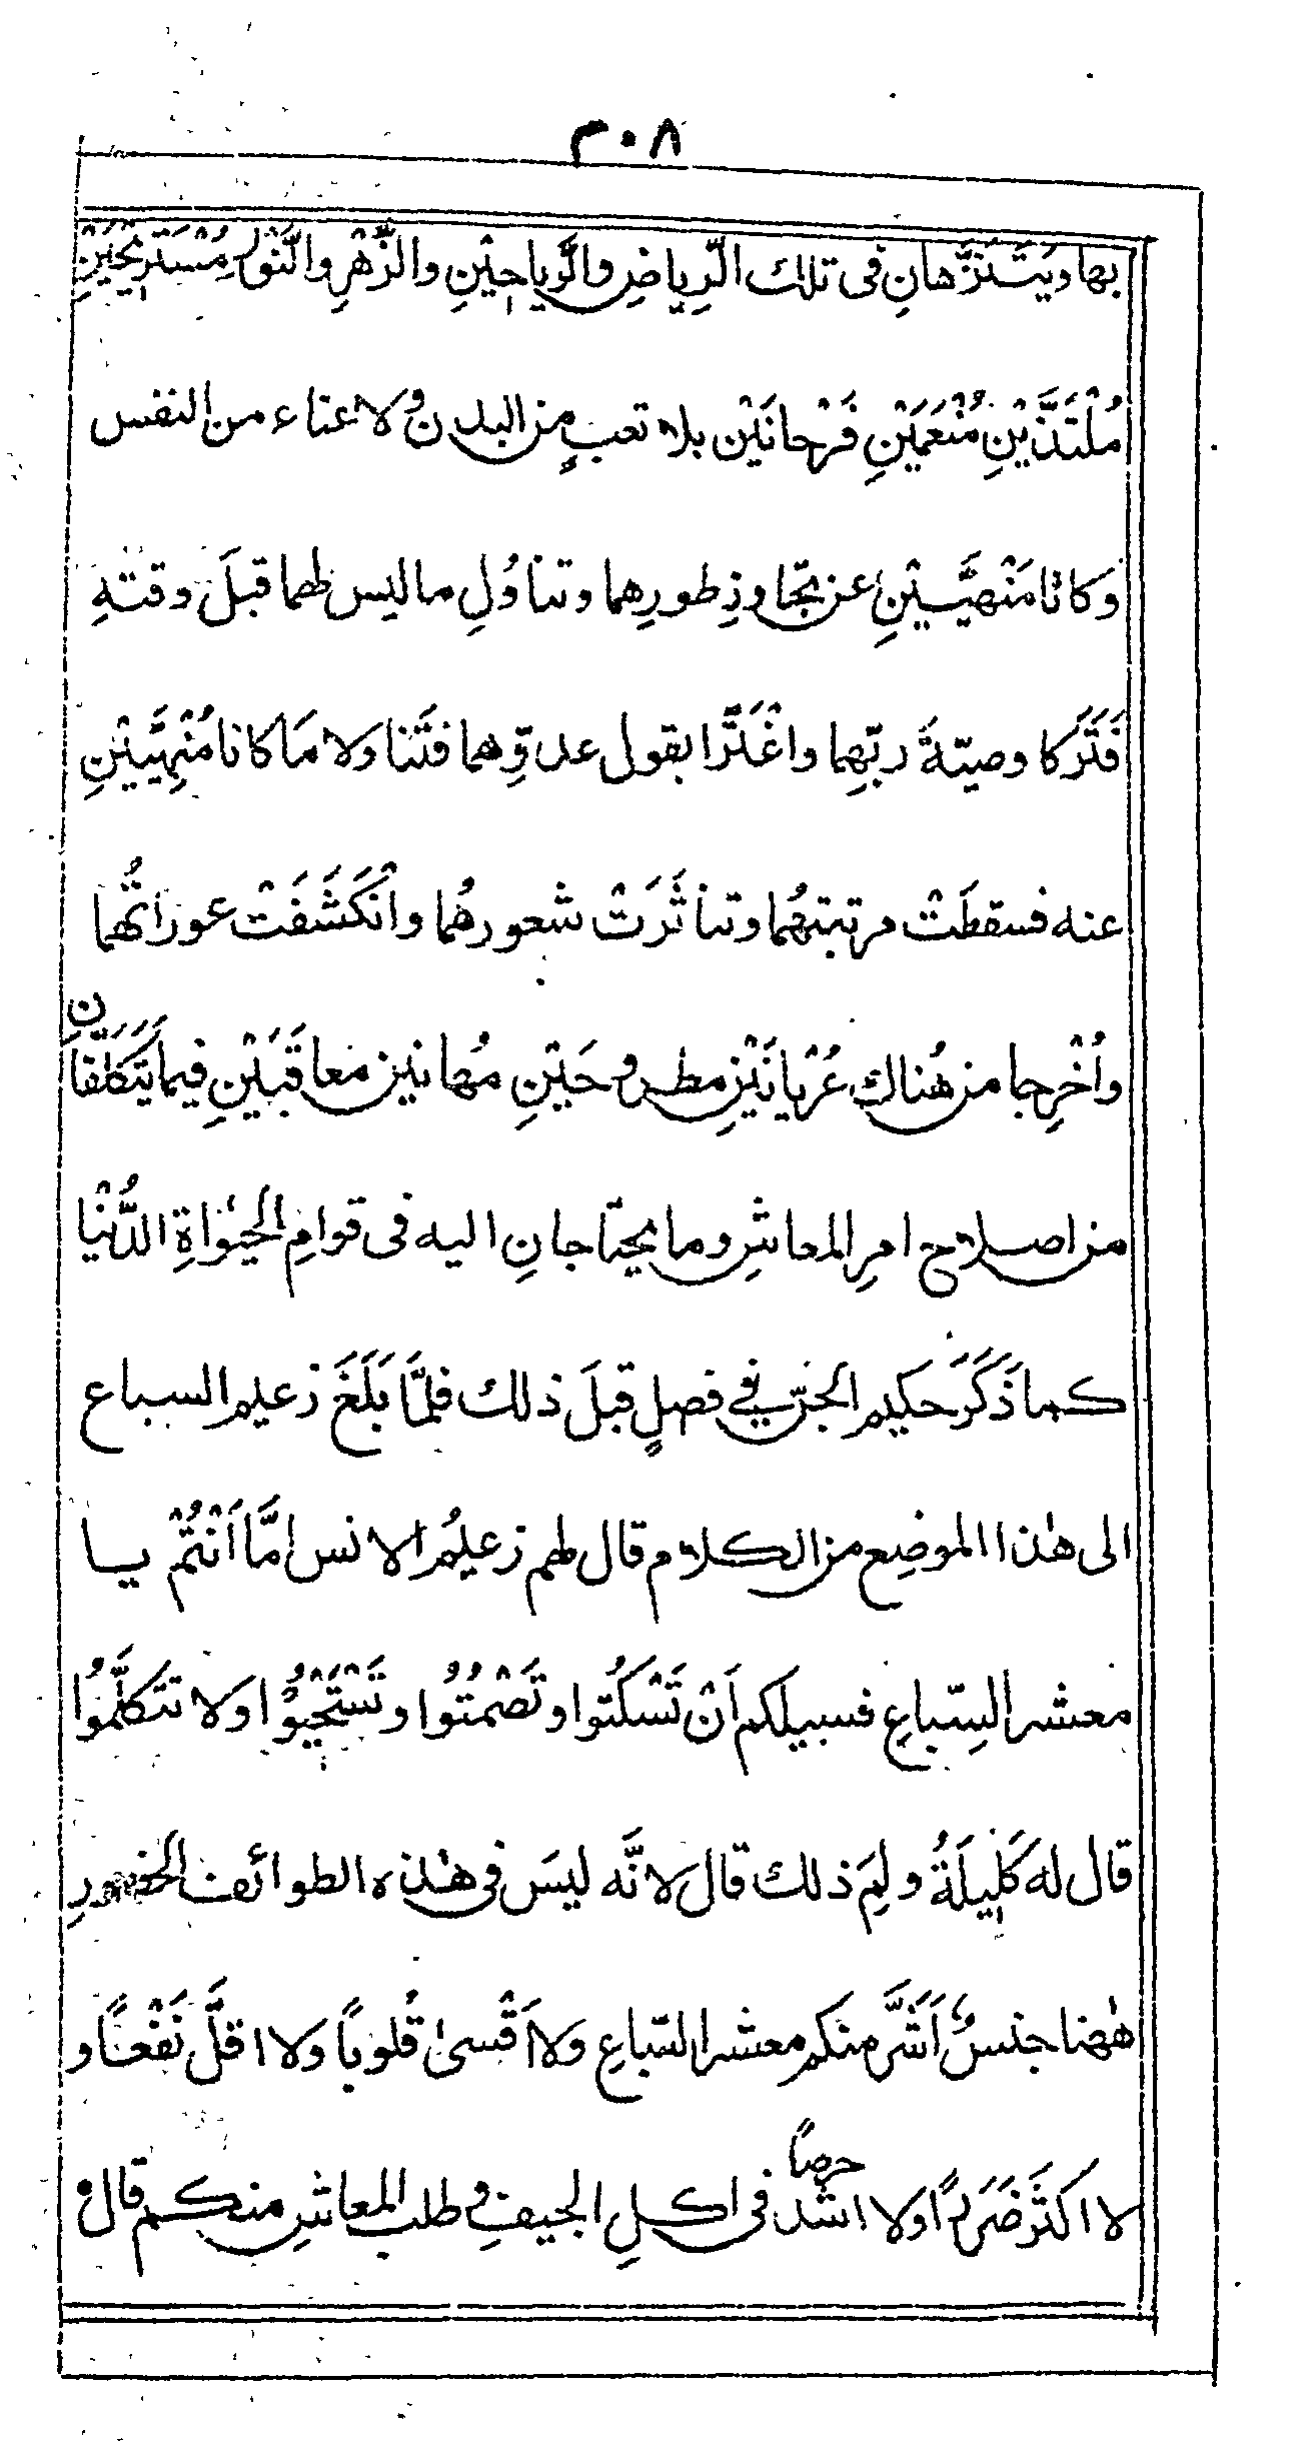 ٣٠٨
بها ويَتَنَزَّهانِ فى تلك الرِّياضِ والرَّياحِيْنِ والزَّهْرِ والنَّوْرِ مُسْتَرِيْحَيْنِ
مُلْتَذَّيْنِ مُنْعَمَيْنِ فَرْحانَيْن بلا تعبٍ من البدن ولا عناء من النفس
وكانا مَنْهيَّيْنِ عن تجاوزِ طورِهما وتناوُلِ ما ليس لهما قبلَ وقتهِ
فَتَرَكا وصيّةَ ربّهِما واغْتَرَّا بقول عدوِّهما فتَناولا مَا كانا مَنْهِيَّيْنِ
عنه فسقطَتْ مرتبتهُما وتناثَرَتْ شعورهُما وانْكَشَفَتْ عوراتُهما
واُخْرِجا من هُناك عُرْيانَيْنِ مطروحَيْنِ مُهانين معاقَبَيْنِ فيما يَتَكَلَّفانِ
من اصلاح امرِ المعاشِ وما يحتاجانِ اليه فى قوامِ الحيٰوةِ الدُّنْيا
كما ذَكَرَ حكيم الجنّ في فصلٍ قبلَ ذلك فلمَّا بَلَغَ زعيم السباع
الى هٰذا الموضِع من الكلام قال لهم زعيمُ الانس امَّا اَنْتُمْ يا
معشر السِّباعِ فسبيلكم اَنْ تَسْكتُوا وتَصْمتُوا وتَسْتَحْيُوْا ولا تتكلَّمُوا
قال له كَلِيلَةُ ولِمَ ذلك قال لانَّه ليسَ فى هٰذه الطوائف الحضورِ
هٰهنا جنسٌ اَشَرَّ منكم معشر السّباعِ ولا اَقْسىٰ قُلوباً ولا اقلَّ نَفْعًا و
لا اكثَرَ ضَرَرًا ولا اشدَّ حرصاً فى اكلِ الجيفِ و طلب المعاشِ منكم قال و